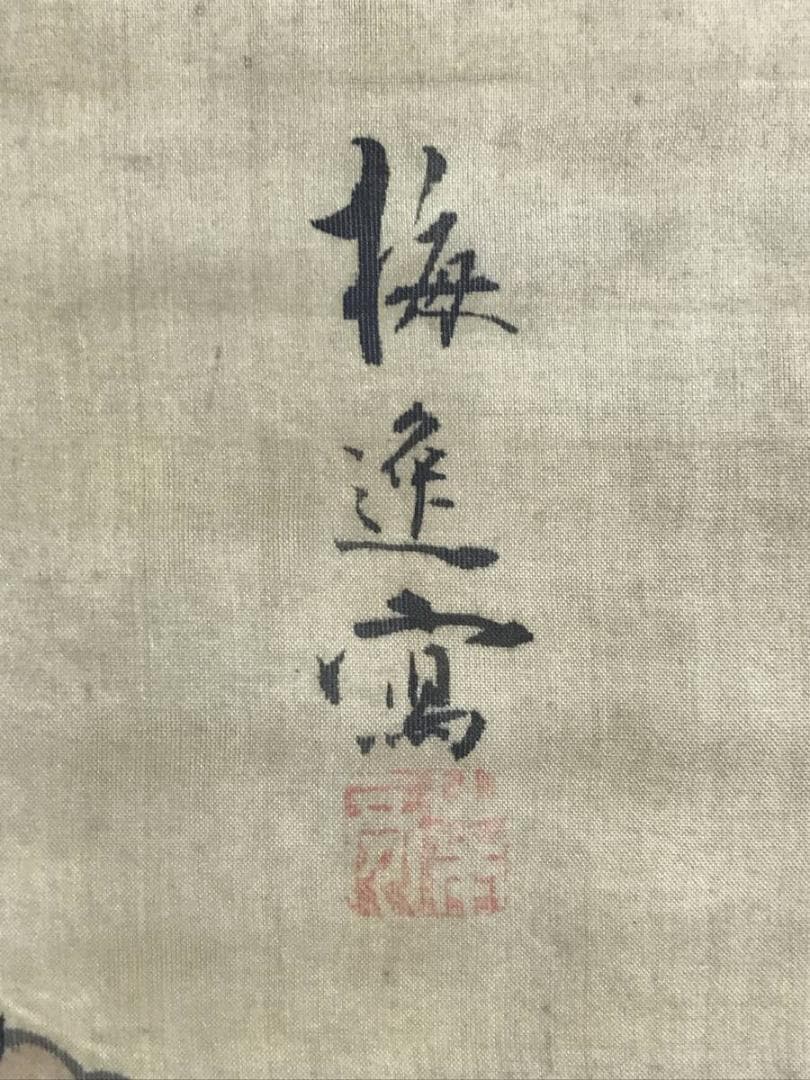 梅逸寫